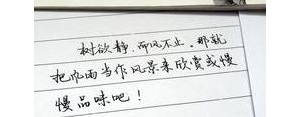 树欲静，而风不止。那就
把你当作风景来欣赏或慢
慢品味吧！